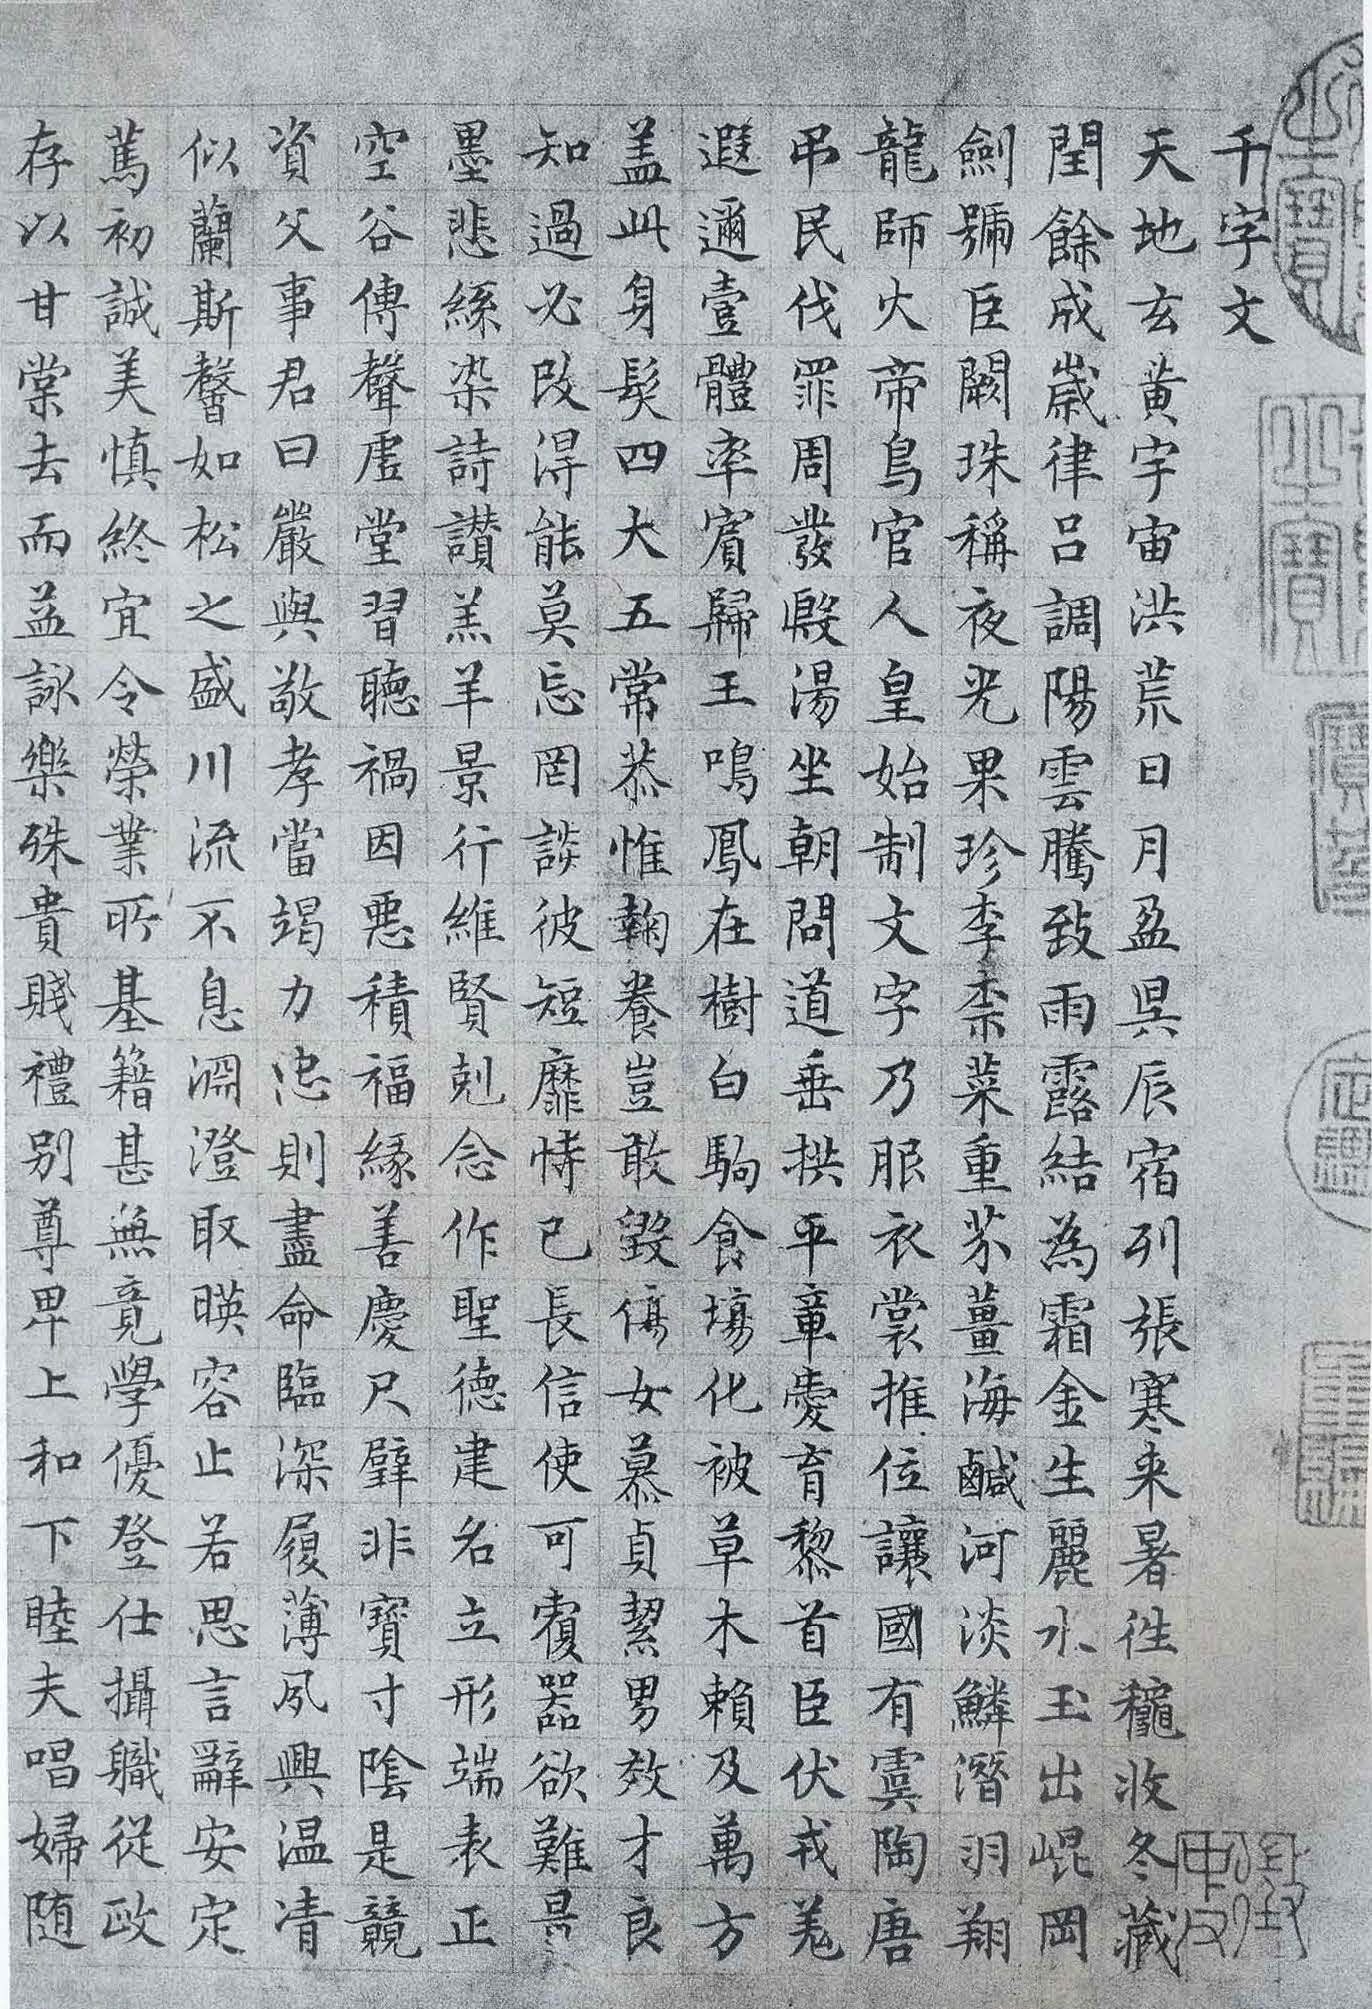 千字文
天地玄黃宇宙洪荒日月盈昃辰宿列張寒来暑往穐收冬藏
閏餘成歲律呂調陽雲騰致雨露結為霜金生麗水玉出崐岡
劍號臣闕珠稱夜光果珍李柰菜重芥薑海鹹河淡鱗潛羽翔
龍師火帝鳥官人皇始制文字乃服衣裳推位讓國有虞陶唐
吊民伐罪周發殷湯坐朝問道垂拱平章愛育黎首臣伏戎羌
遐邇壹體率賓歸王鳴鳳在樹白駒食場化被草木賴及萬方
盖此身髮四大五常恭惟鞠養豈敢毀傷女慕貞絜男效才良
知過必改得能莫忘罔談彼短靡恃己長信使可覆器欲難量
墨悲絲染詩讚羔羊景行維賢剋念作聖德建名立形端表正
空谷傳聲虛堂習聽禍因惡積福緣善慶尺璧非寶寸陰是競
資父事君曰嚴與敬孝當竭力忠則盡命臨深履薄夙興温清
似蘭斯馨如松之盛川流不息淵澄取暎容止若思言辭安定
篤初誠美慎終宜令榮業所基籍甚無竟學優登仕攝職從政
存以甘棠去而益詠樂殊貴賤禮别尊卑上和下睦夫唱婦随